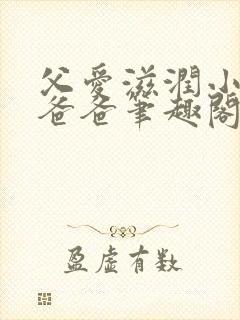 父愛滋潤小
爸爸筆趣閣
盈虛有数